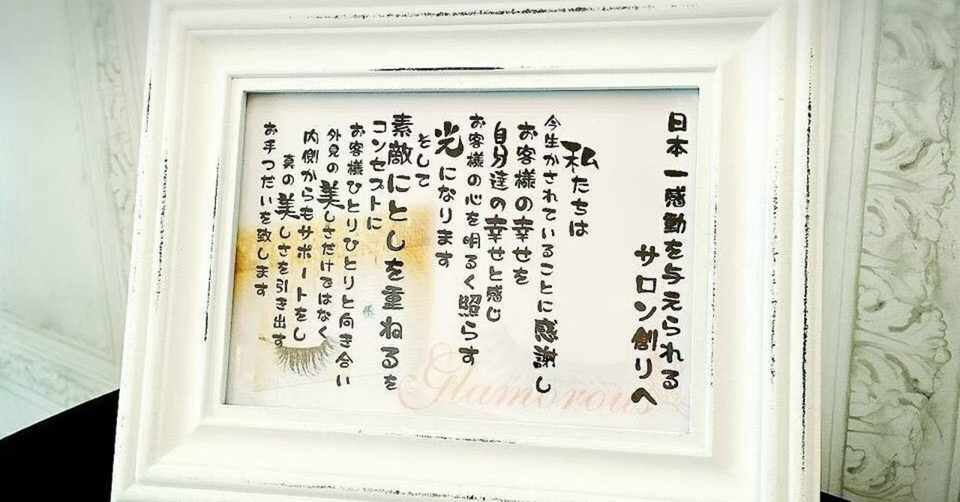 日本一感動を与えられる
サロン創りへ
私たちは
今生かされていることに感謝し
お客様の幸せを
自分達の幸せと感じ
お客様の心を明るく照らす
光になります
そして
素敵にとしを重ねるを
コンセプトに
お客様ひとりひとりと向き合い
外見の美しさだけではなく
内側からもサポートをし
真の美しさを引き出す
お手つだいを致します
Glamorous